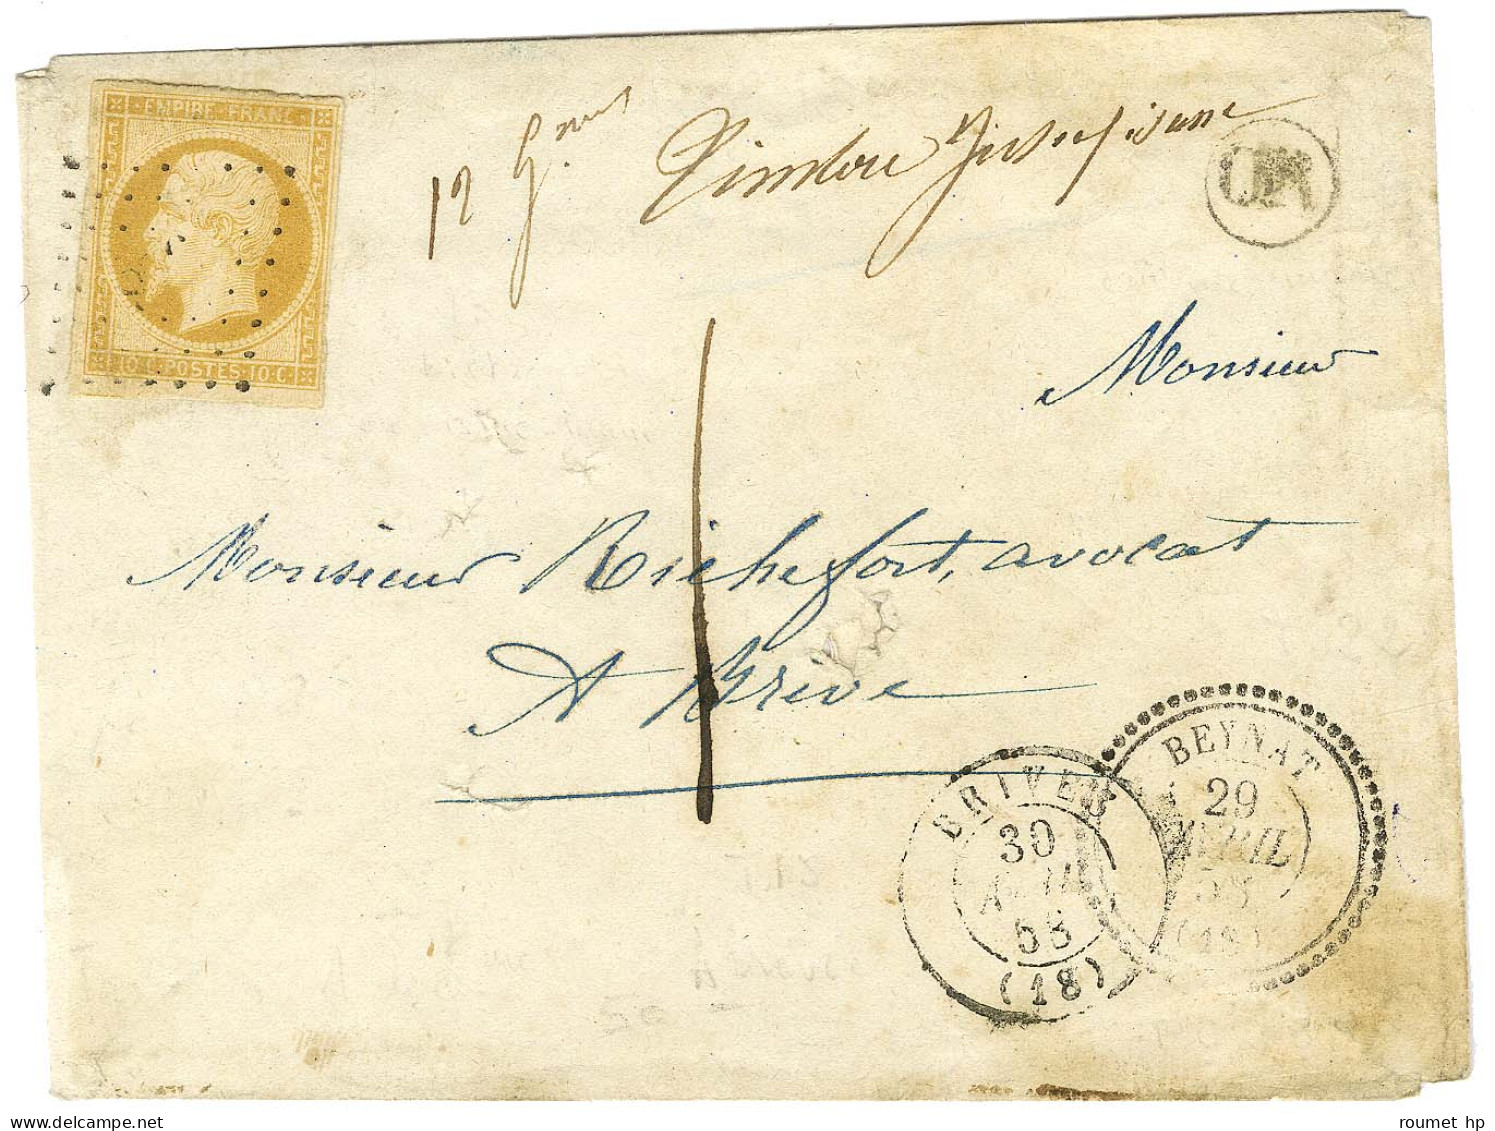 EMPIRE FRANC
10 C. POSTES 10 C.
12 G.
OR
Monsieur
Monsieur Richefort, avocat
A Brive
1
BRIVES
30
AVRIL
58
(18)
BEYNAT
29
AVRIL
58
(18)
roumet hp